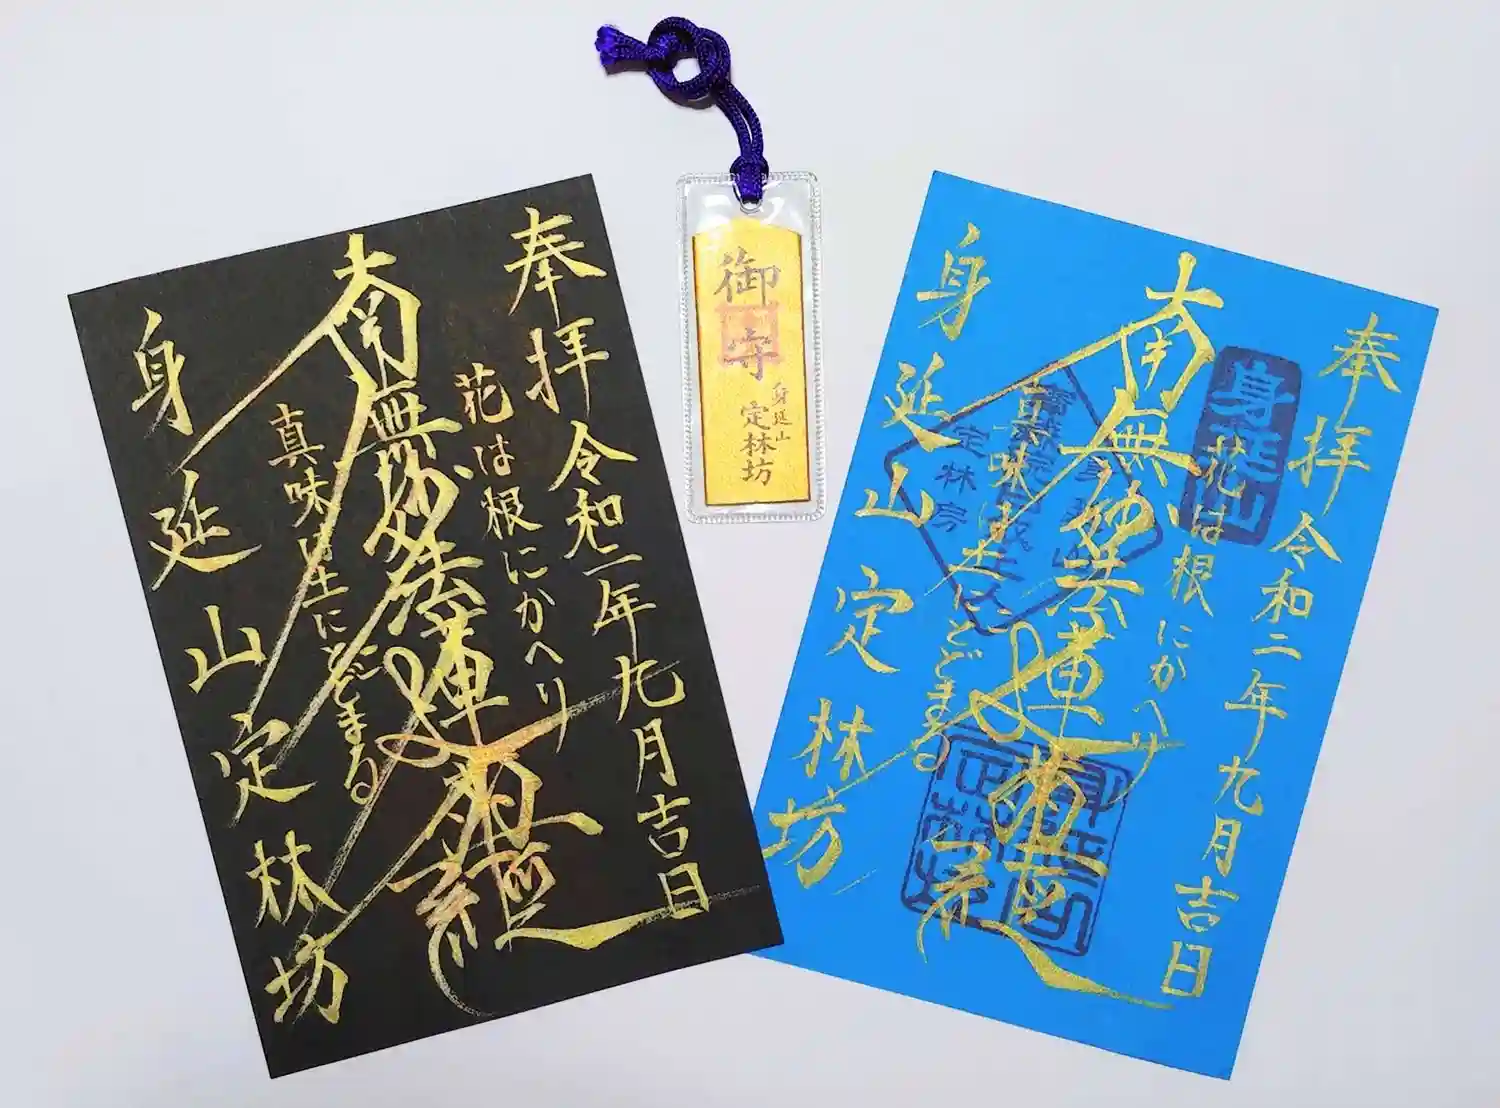 奉拝 令和二年九月吉日
花は根にかへり
南無妙法蓮華経
真味は土にとどまる
身延山定林坊
御守
身延山
定林坊
奉拝 令和二年九月吉日
身延山
花は根にかへり
南無妙法蓮華経
真味は土にとどまる
身延山定林坊
定林房